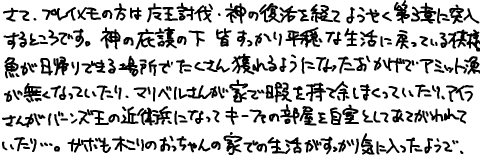 さて、プレイメモの方は 魔王討伐・神の復活を経て ようやく 第3章に突入
するところです。神の庇護の下 皆すっかり平穏な生活に戻っている様子。
魚が日帰りできる場所でたくさん獲れるようになったおかげでアミット漁
が無くなっていたり、マリベルさんが家で暇を持て余しまくっていたり、アイラ
さんがバーンズ王の近衛兵になって キーファの部屋を自室としてあてがわれて
いたり…。ガボも木こりのおっちゃんの家での生活がすっかり気に入ったようで、